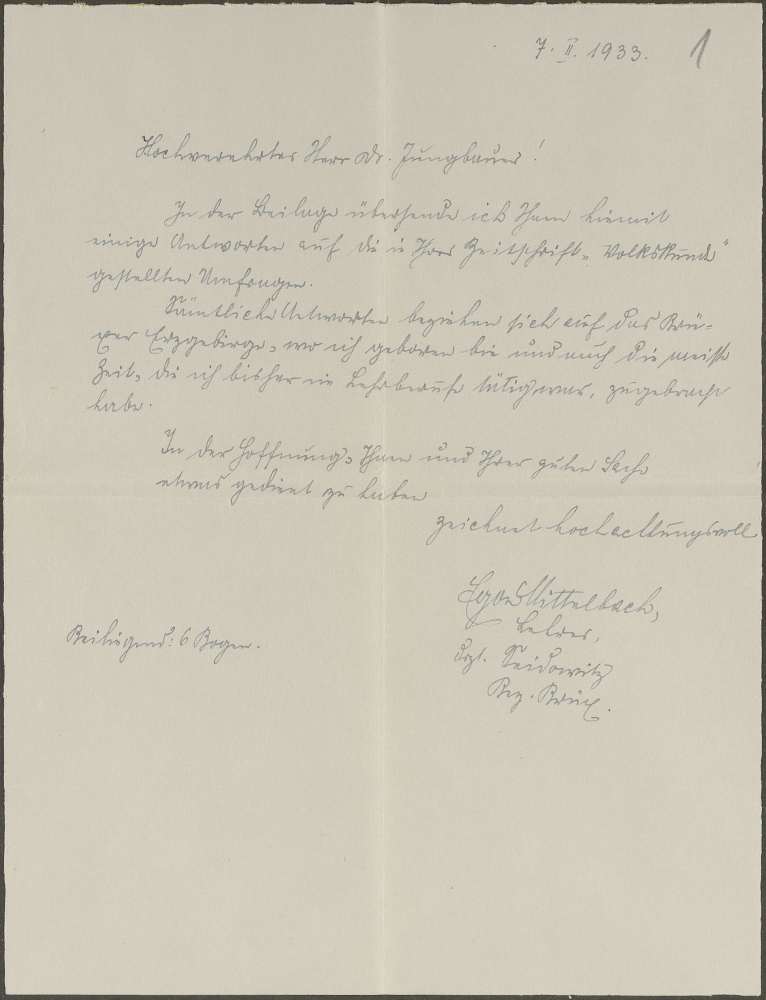 7. II. 1933.
1
Hochverehrter Herr Dr. Jungbauer!
In der Beilage übersende ich Ihnen hiemit
einige Antworten auf die in Ihrer Zeitschrift „Volkskunde“
gestellten Umfragen.
Sämtliche Antworten beziehen sich auf das Brü-
xer Erzgebirge, wo ich geboren bin und auch die meiste
Zeit, die ich bisher im Lehrberufe tätig war, zugebracht
habe.
In der Hoffnung, Ihnen und Ihrer guten Sache
etwas gedient zu haben
zeichnet hochachtungsvoll
Egon Mittelbach,
Lehrer,
dzt. Seidowitz
Bez. Brüx.
Beiliegend: 6 Bogen.